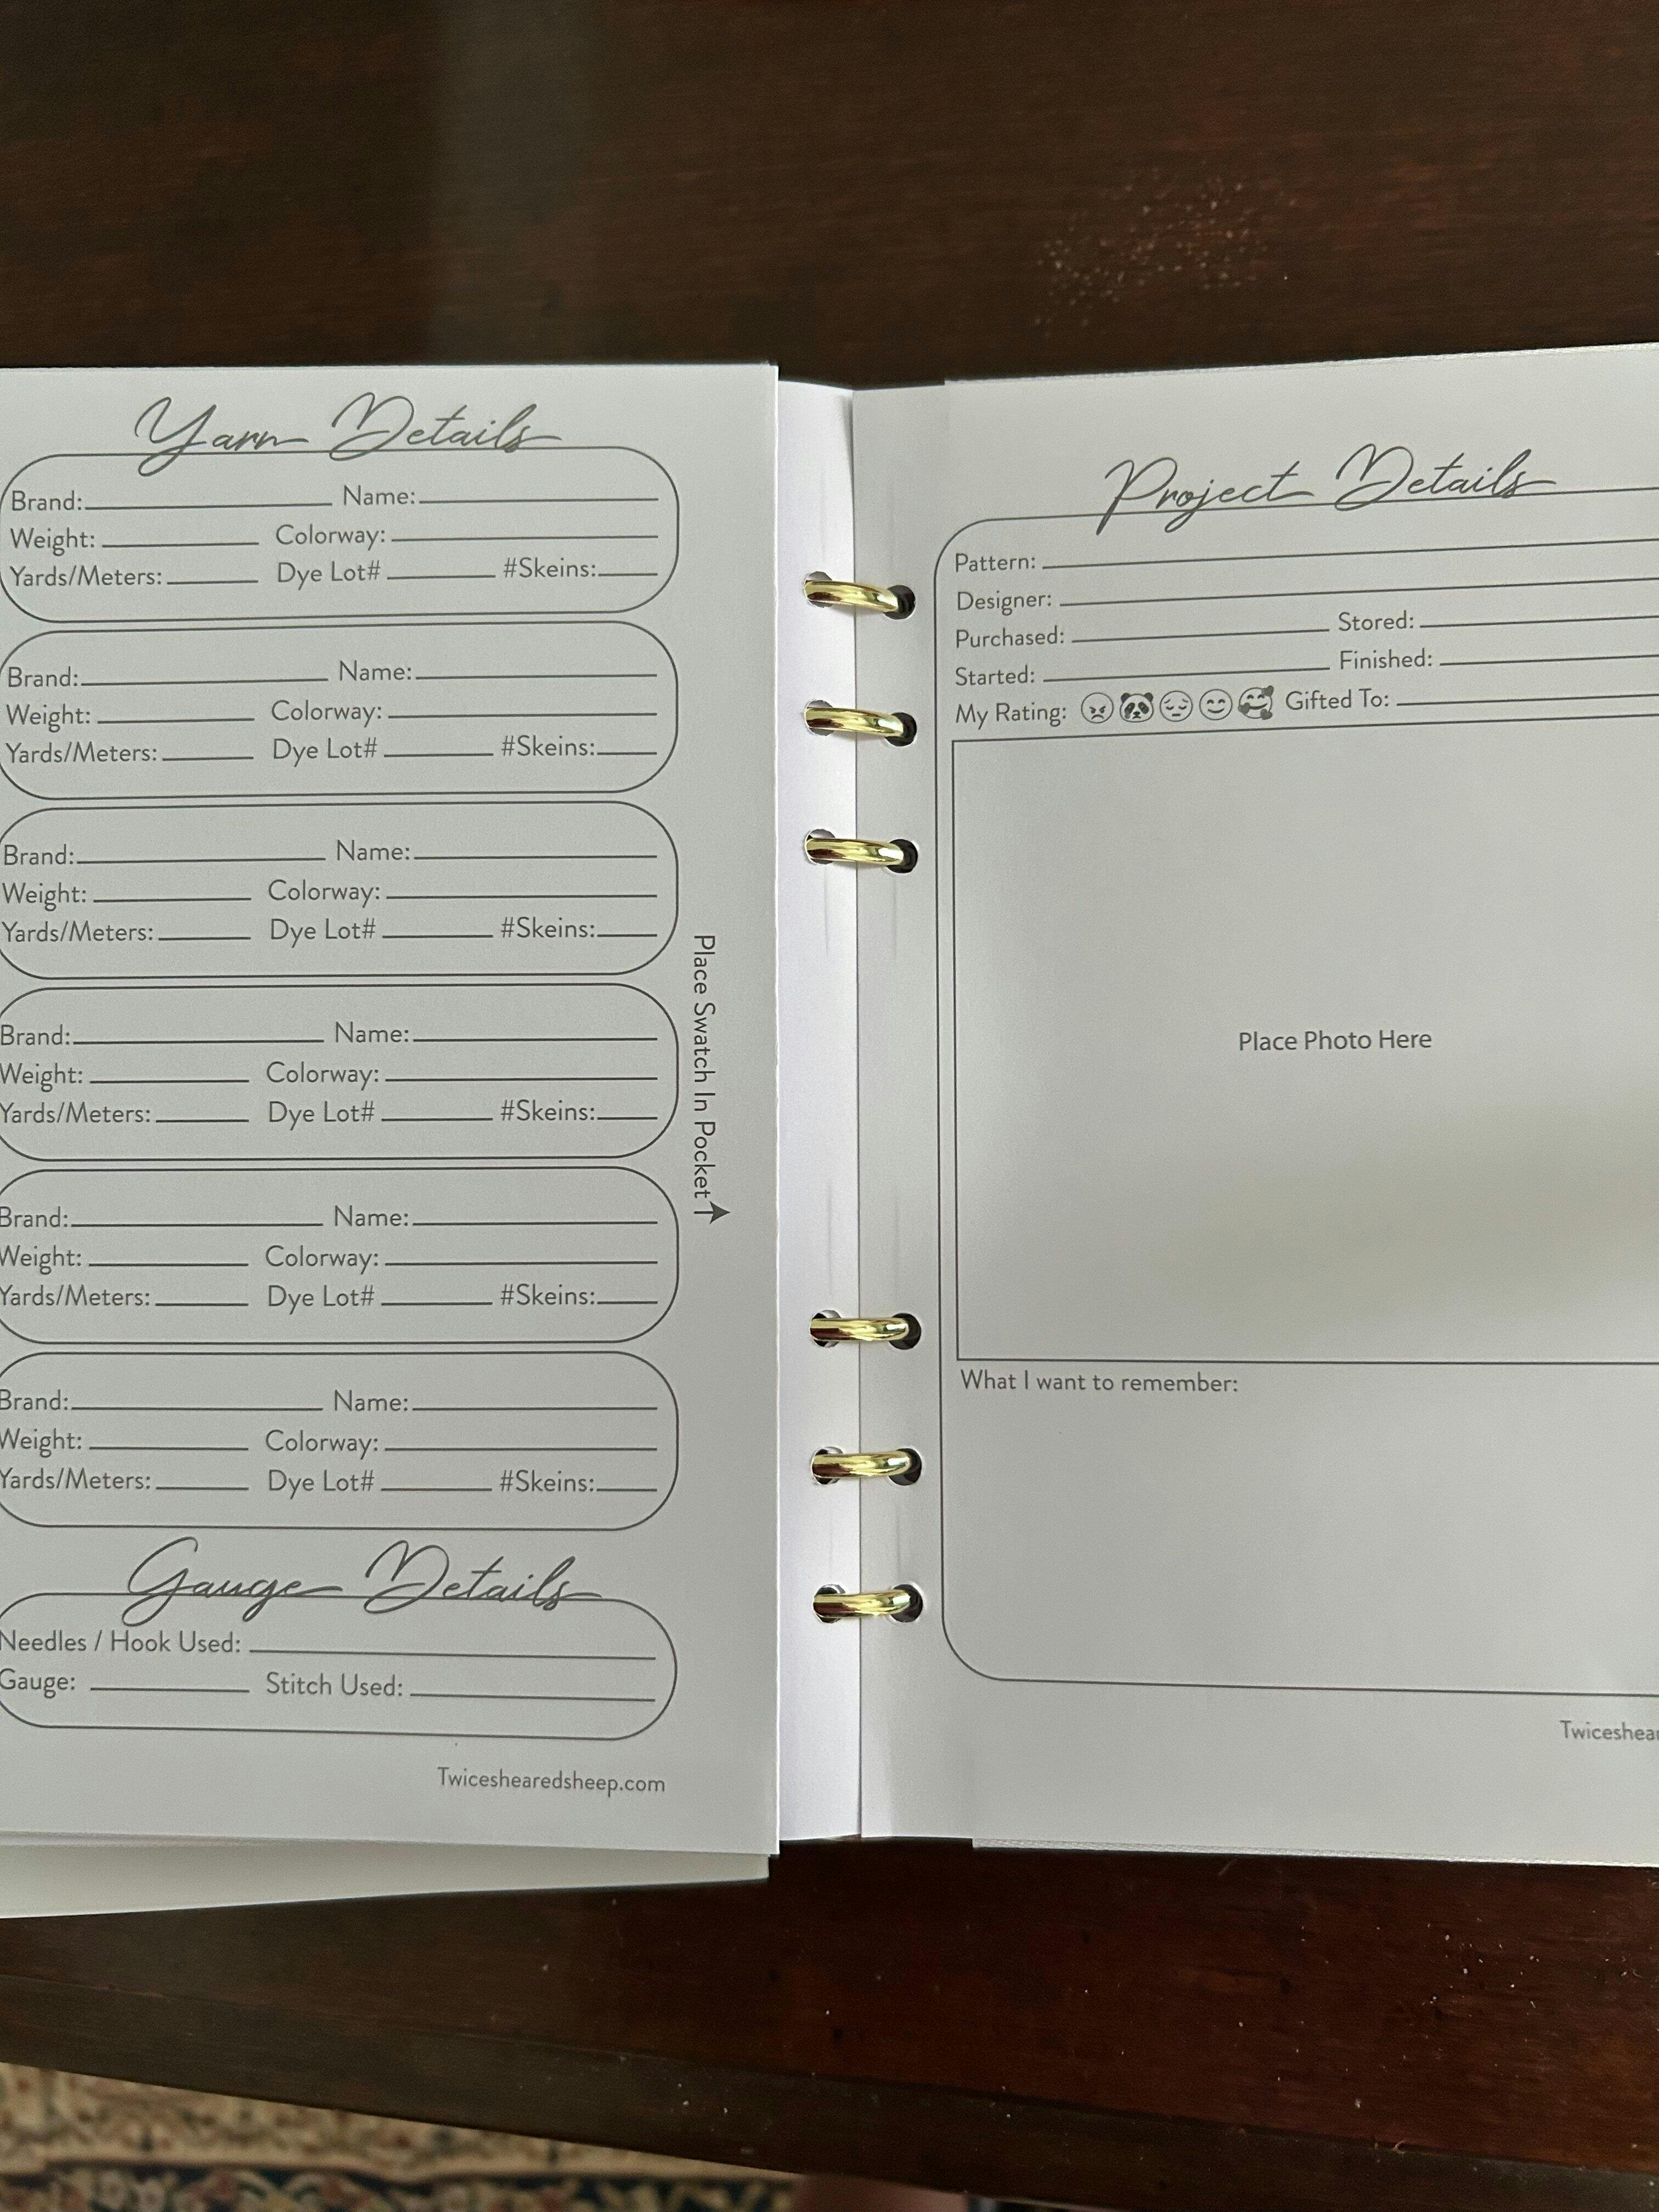 Yarn Details
Brand: Name:
Weight: Colorway:
Yards/Meters: Dye Lot# #Skeins:
Brand: Name:
Weight: Colorway:
Yards/Meters: Dye Lot# #Skeins:
Brand: Name:
Weight: Colorway:
Yards/Meters: Dye Lot# #Skeins:
Brand: Name:
Weight: Colorway:
Yards/Meters: Dye Lot# #Skeins:
Brand: Name:
Weight: Colorway:
Yards/Meters: Dye Lot# #Skeins:
Brand: Name:
Weight: Colorway:
Yards/Meters: Dye Lot# #Skeins:
Place Swatch In Pocket
Gauge Details
Needles / Hook Used:
Gauge: Stitch Used:
Twiceshearedsheep.com
Project Details
Pattern:
Designer:
Purchased: Stored:
Started: Finished:
My Rating: Gifted To:
Place Photo Here
What I want to remember: